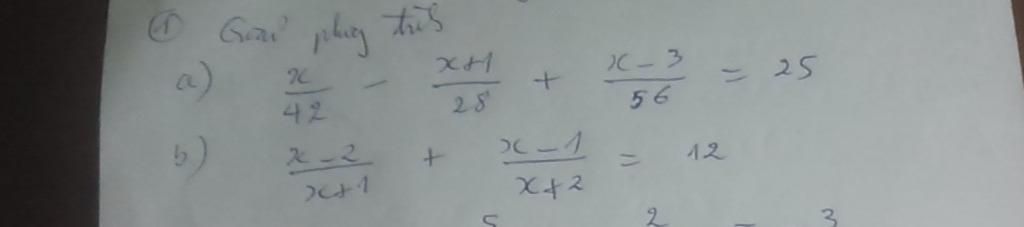 ① Giải phương trình
a) x/42 - x+1/28 + x-3/56 = 25
b) x-2/x+1 + x-1/x+2 = 12
5 2 = 3